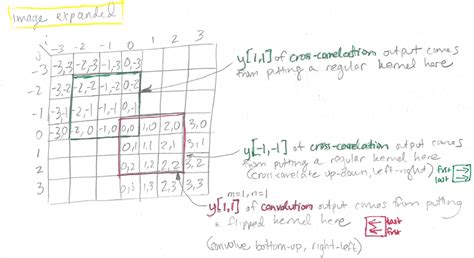 image expanded
j
i -3 -2 -1 0 1 2 3
-3 -3,-3 -2,-3 -1,-3 0,-3
-2 -3,-2 -2,-2 -1,-2 0,-2
-1 -3,-1 -2,-1 -1,-1 0,-1
0 -3,0 -2,0 -1,0 0,0 1,0 2,0 3,0
1 0,1 1,1 2,1 3,1
2 0,2 1,2 2,2 3,2
3 0,3 1,3 2,3 3,3
y[1,1] of cross-correlation output comes
from putting a regular kernel here
y[-1,-1] of cross-correlation output comes
from putting a regular kernel here
(cross-correlate up-down, left-right) first
last
m=1, n=1
y[1,1] of convolution output comes from putting
a flipped kernel here last
first
(convolve bottom-up, right-left)